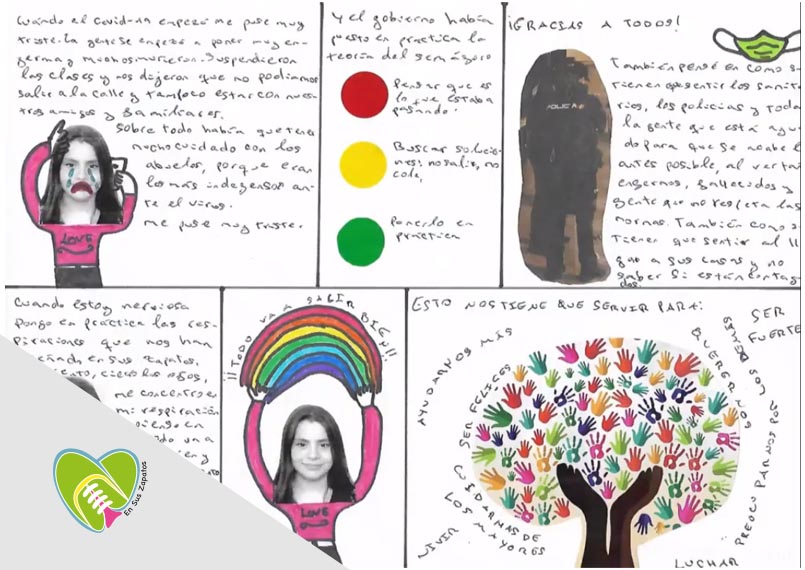 Cuándo el Covid-19 empezó me puse muy
triste. La gente se empezó a poner muy en-
ferma y muchos murieron. Suspendieron
las clases y nos dijeron que no podíamos
salir a la calle y tampoco estar con nues-
tros amigos y familiares.
Sobre todo había que tener
mucho cuidado con los
abuelos, porque eran
los más indefensos an-
te el virus.
me puse muy triste.
LOVE
Y el gobierno había
puesto en practica la
teoría del semáforo
Pensar que es
lo que estaba
pasando.
Buscar solucio-
nes: no salir, no
cole,
Ponerlo en
práctica
¡GRACIAS A TODOS!
POLICIA
También pensé en como se
tienen que sentir los sanita
rios, los policías y toda
la gente que está ayu
do para que se acabe l
antes posible, al ver tan
enfermos, fallecidos y
gente que no respeta las
normas. También como s
tienen que sentir al ll
gar a sus casas y no
saber si están contag
dos.
Cuando estoy nerviosa
pongo en práctica las res-
piraciones que nos han
en sus zapatos,
cierro los ojos,
me concentro en
mi respiración
una
y
En Sus Zapatos
¡¡TODO VA A SALIR BIEN!!
LOVE
ESTO NOS TIENE QUE SERVIR PARA:
SER
FUERTE
AYUDARNOS MÁS
SER FELICES
QUERERNOS
CUIDARNAS DE
LOS MAYORES
VIVIR
PREOCUPARNOS POR
LOS DEMÁS
LUCHAR